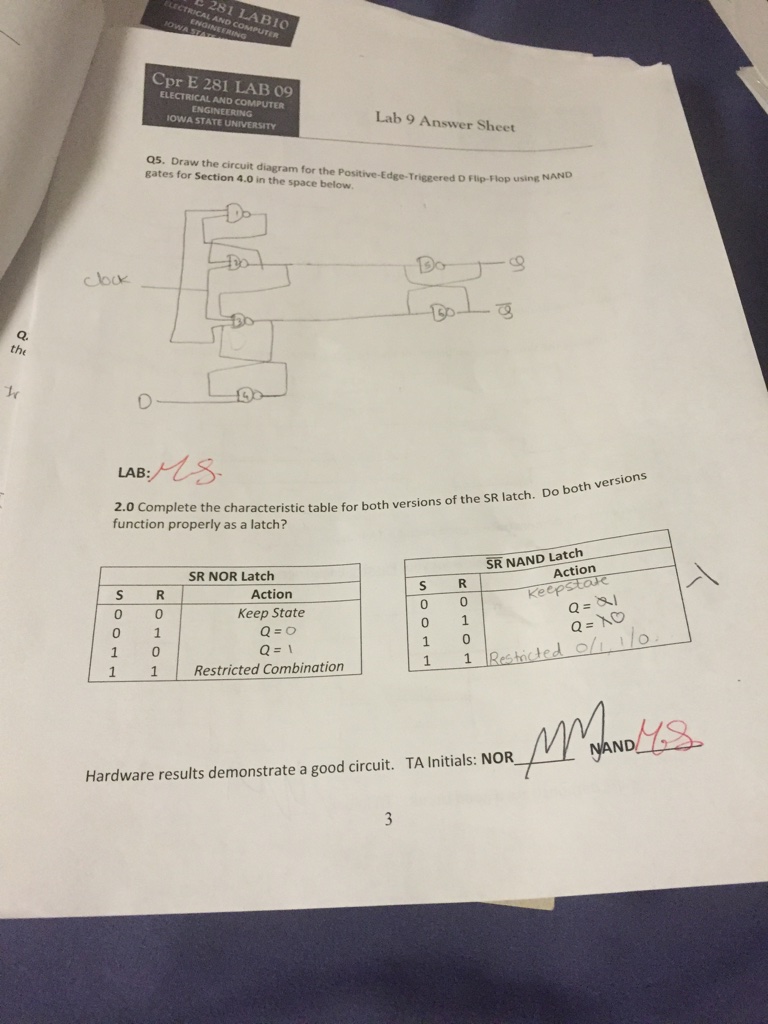 E 281 LAB10
ELECTRICAL AND COMPUTER
ENGINEERING
IOWA STATE
Cpr E 281 LAB 09
ELECTRICAL AND COMPUTER
ENGINEERING
IOWA STATE UNIVERSITY
Lab 9 Answer Sheet
Q5. Draw the circuit diagram for the Positive-Edge-Triggered D Flip-Flop using NAND
gates for Section 4.0 in the space below.
1
2
5 Q
Clock
3
6 Q̅
Q.
the
D 4
LAB: MS
2.0 Complete the characteristic table for both versions of the SR latch. Do both versions
function properly as a latch?
SR NOR Latch
S R Action
0 0 Keep State
0 1 Q = 0
1 0 Q = 1
1 1 Restricted Combination
S̅R̅ NAND Latch
S R Action
0 0 Keep state
0 1 Q = 1
1 0 Q = 0
1 1 Restricted 0/1, 1/0.
Hardware results demonstrate a good circuit. TA Initials: NOR MM NAND MS
3